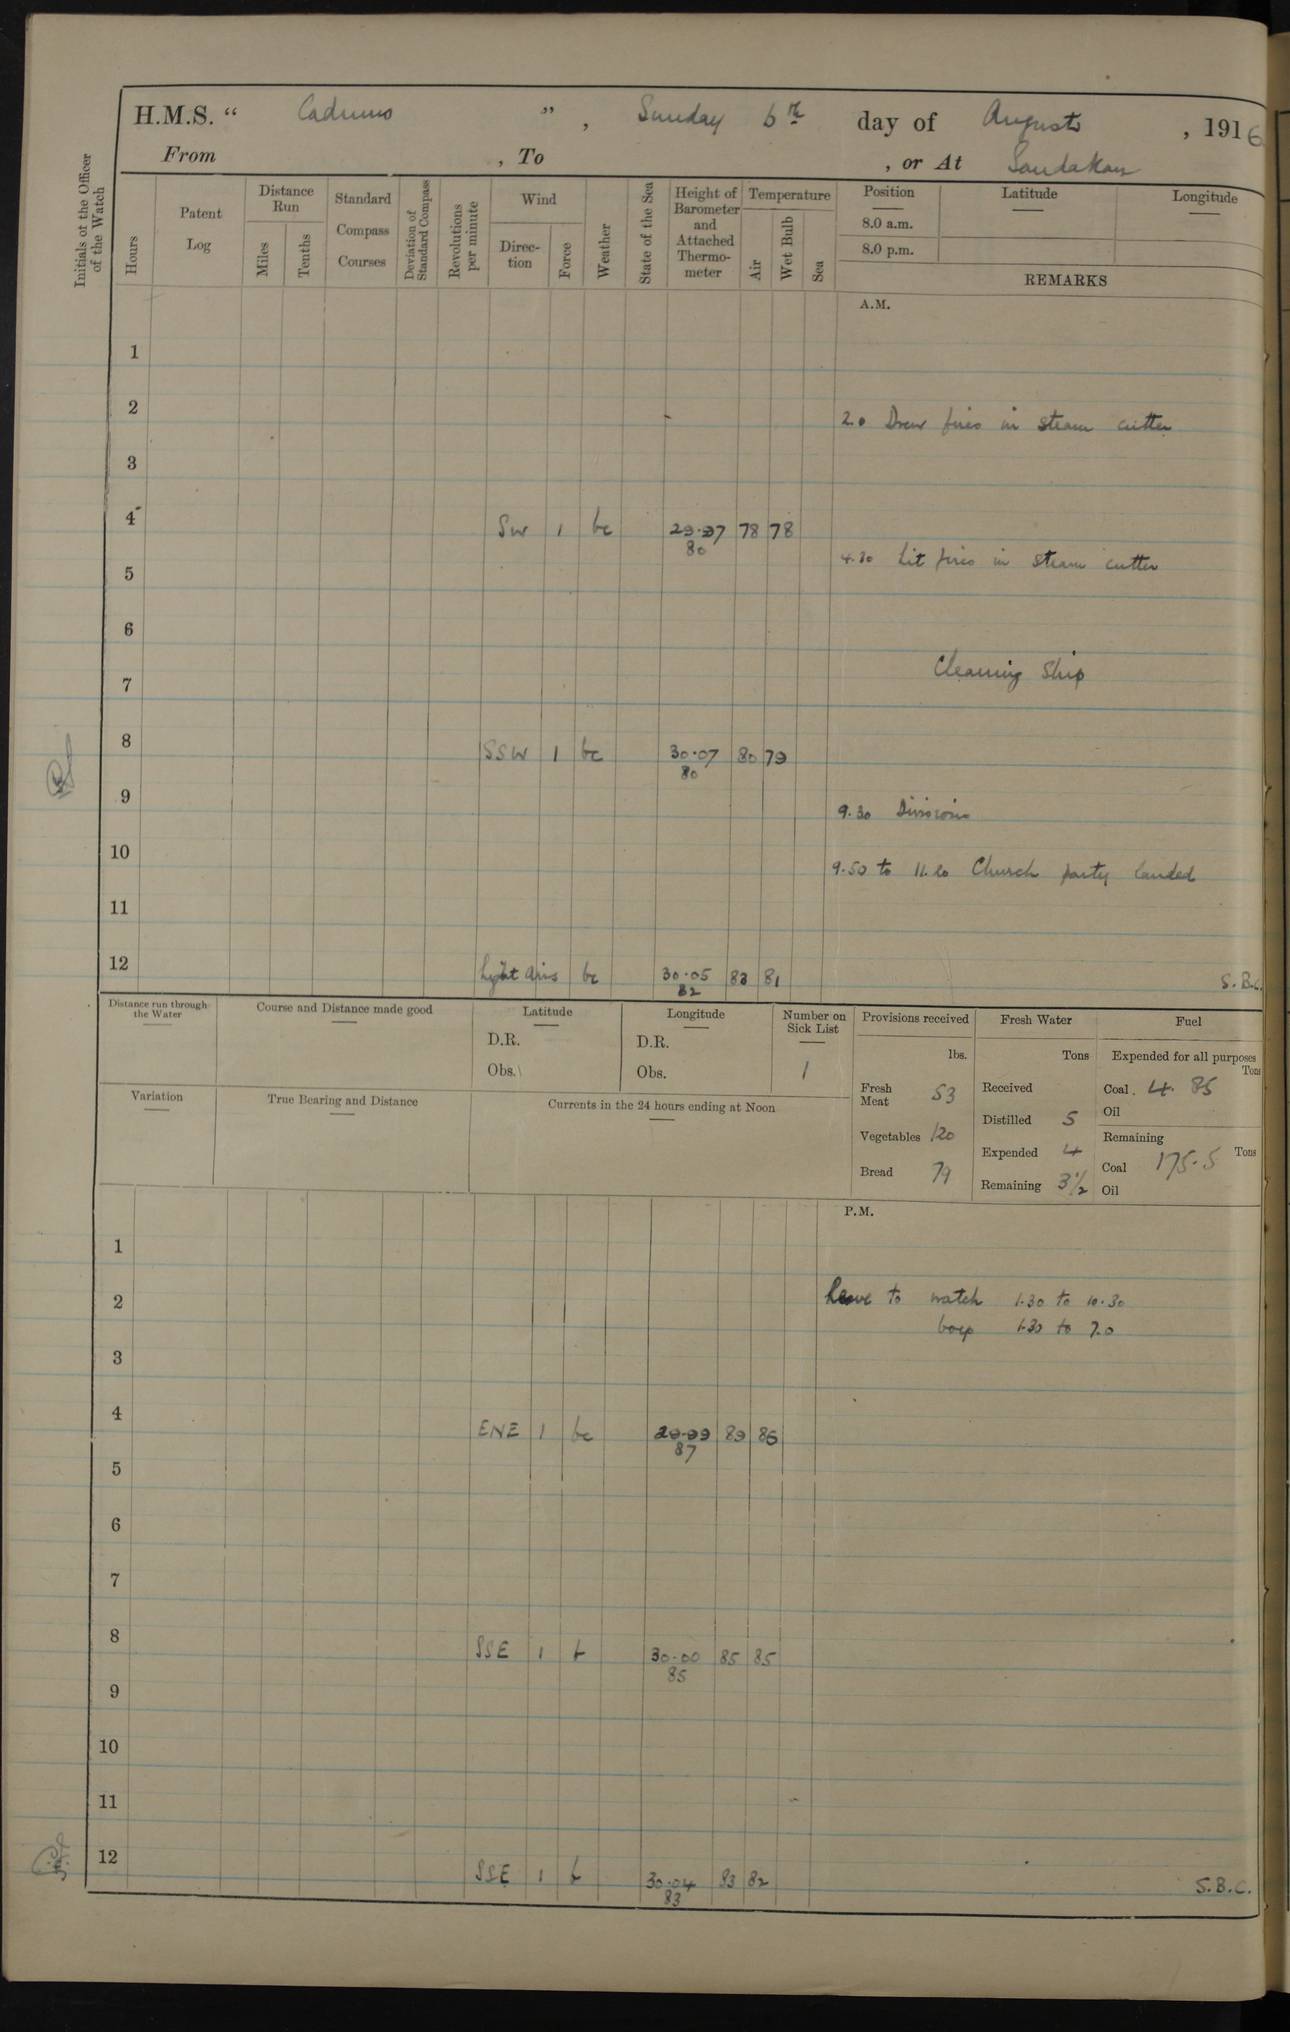 H.M.S. “ Cadmus ” , Sunday 6th day of August , 1916
From , To , or At Sandakan
Initials of the Officer of the Watch
Hours
Patent Log
Distance Run
Miles
Tenths
Standard Compass Courses
Deviation of Standard Compass
Revolutions per minute
Wind
Direc-tion
Force
Weather
State of the Sea
Height of Barometer and Attached Thermo-meter
Temperature
Air
Wet Bulb
Sea
Position
Latitude
Longitude
8.0 a.m.
8.0 p.m.
REMARKS
A.M.
1
2
2.0 Drew fires in steam cutter
3
4 SW 1 bc 29.97 78 78
80
4.30 Lit fires in steam cutter
5
6
Cleaning Ship
7
8 SSW 1 bc 30.07 80 79
80
9
9.30 Divisions
10
9.50 to 11.20 Church party landed
11
12 Light airs bc 30.05 83 81
82
S.B.C.
Distance run through the Water
Course and Distance made good
Latitude
D.R.
Obs.
Longitude
D.R.
Obs.
Number on Sick List
1
Provisions received
lbs.
Fresh Meat 53
Vegetables 120
Bread 79
Fresh Water
Tons
Received
Distilled 5
Expended 4
Remaining 31/2
Fuel
Expended for all purposes
Tons
Coal. 4.85
Oil
Remaining
Tons
Coal 175.5
Oil
Variation
True Bearing and Distance
Currents in the 24 hours ending at Noon
P.M.
1
2
Leave to watch 1.30 to 10.30
boys 1.30 to 7.0
3
4 ENE 1 bc 29.99 89 86
87
5
6
7
8 SSE 1 b 30.00 85 85
85
9
10
11
12 SSE 1 b 30.04 83 82
83
S.B.C.